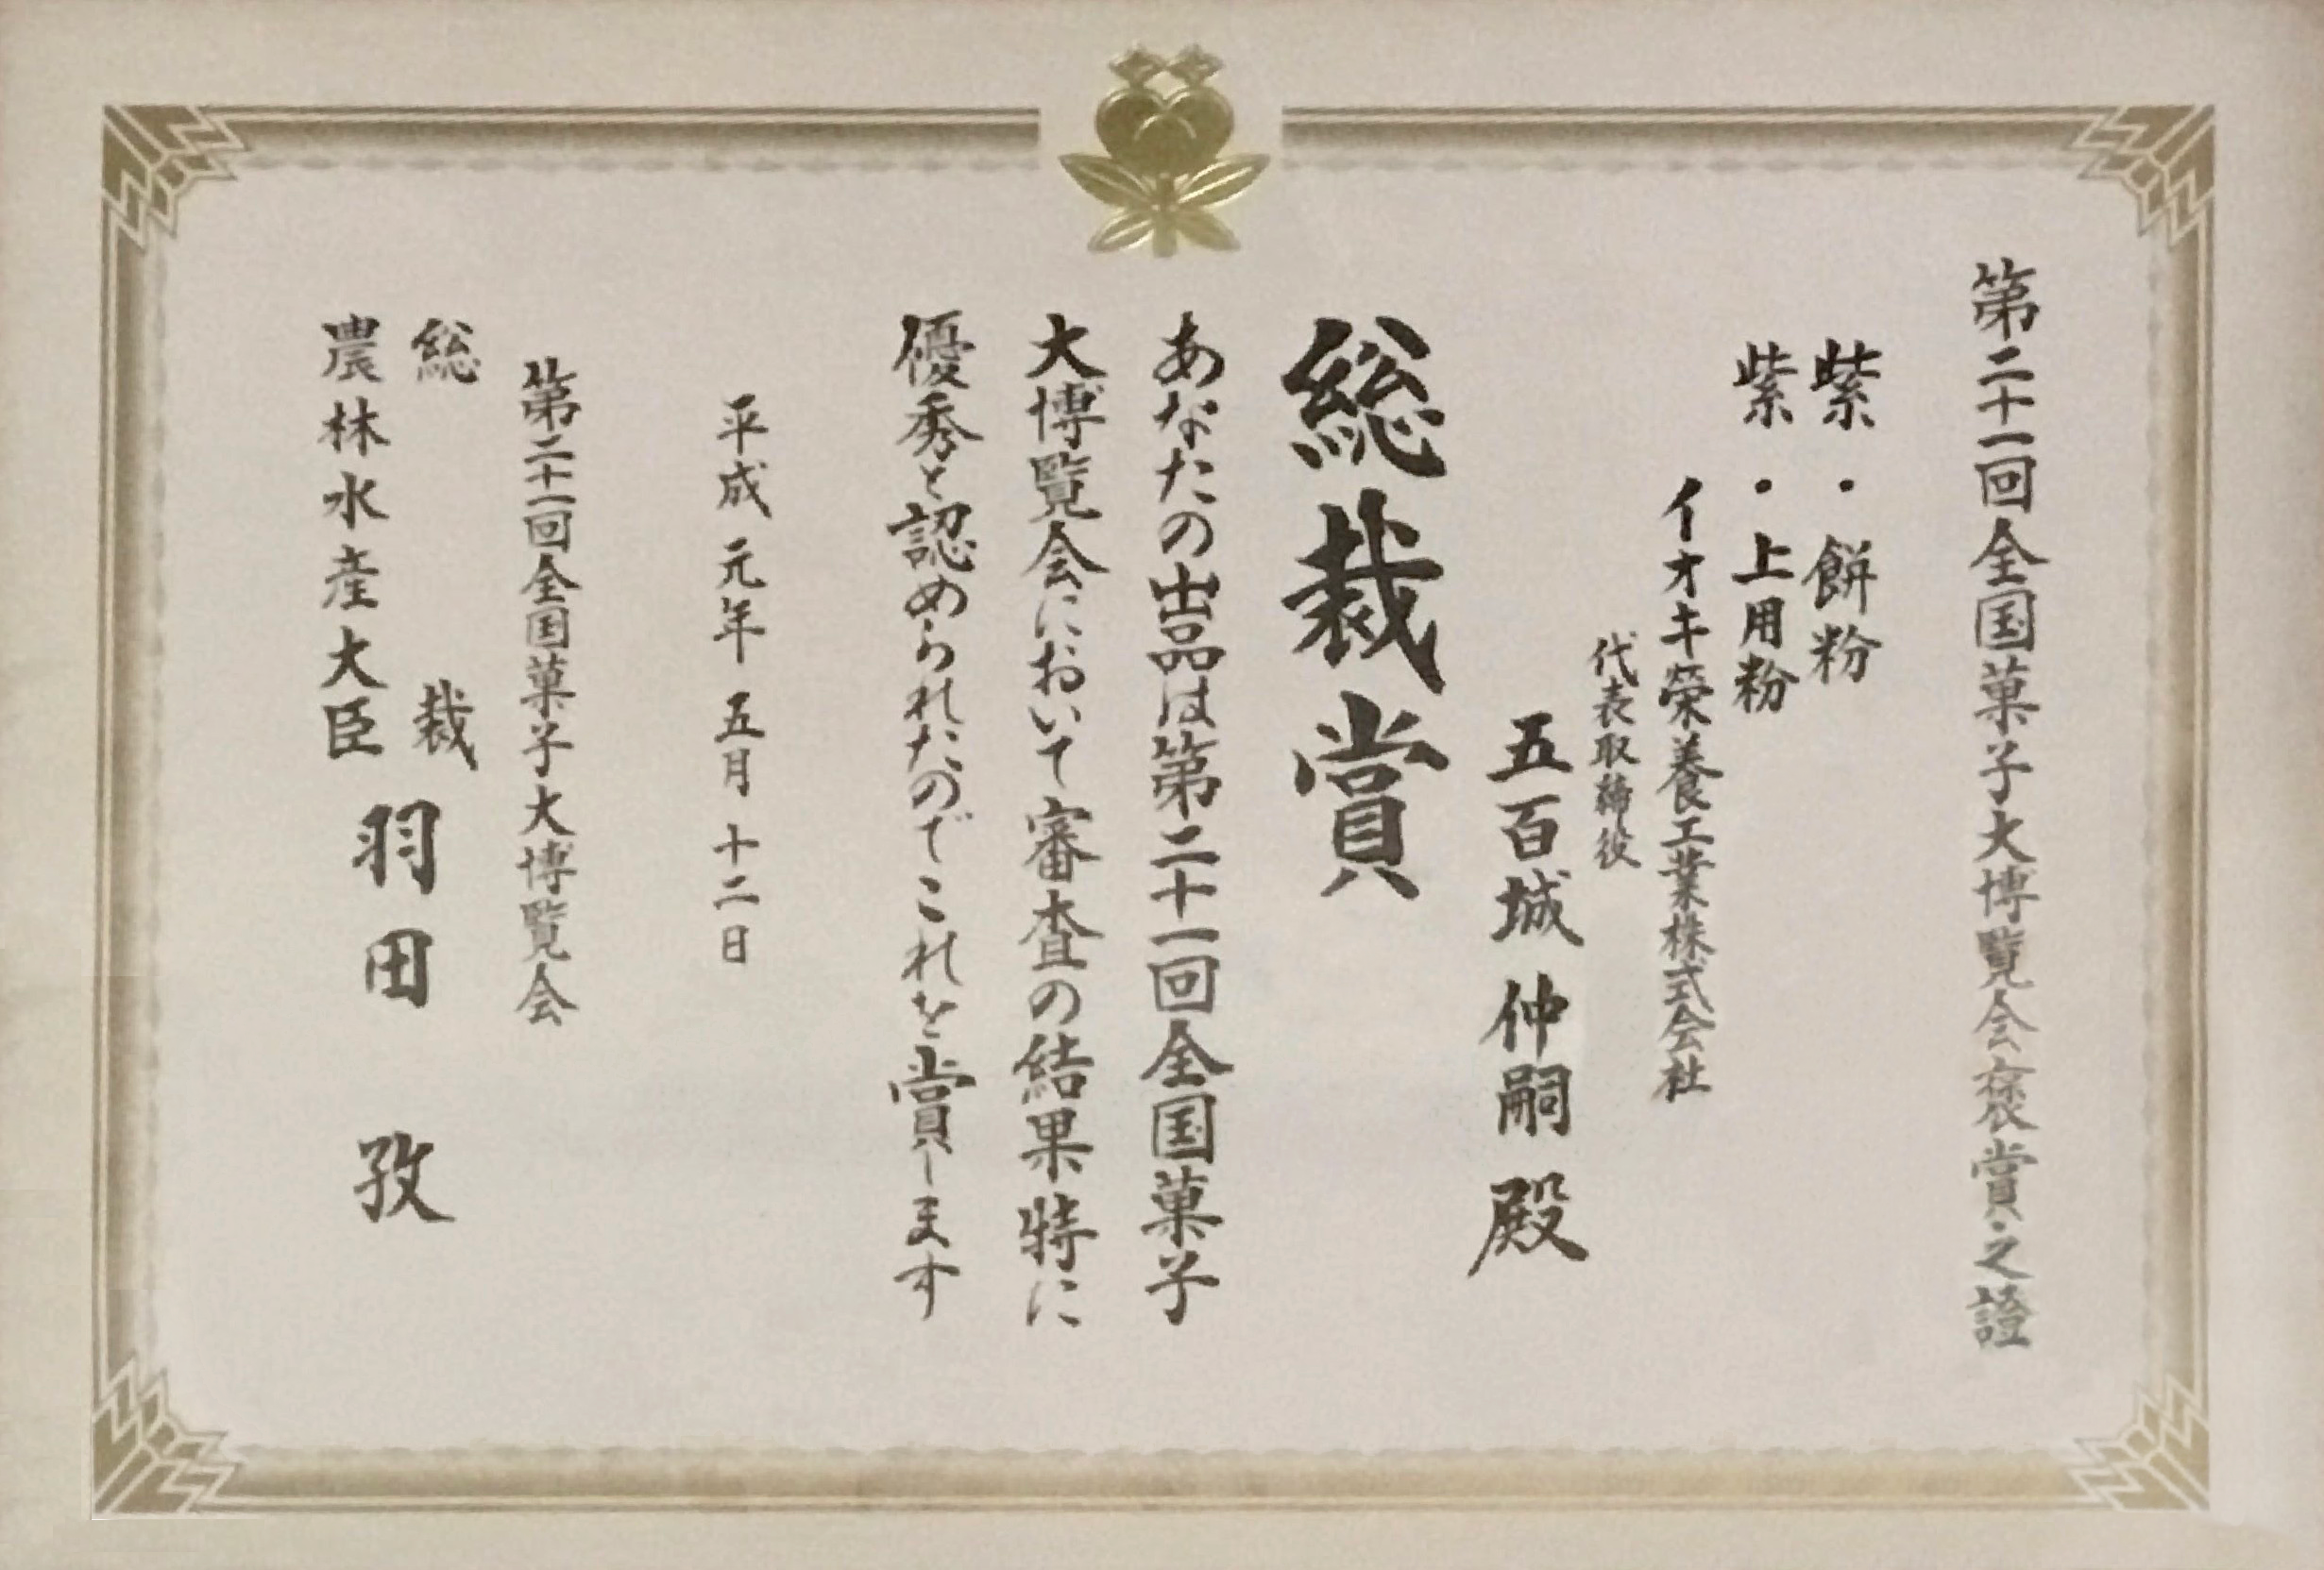 第二十一回全国菓子大博覧会褒賞之證
紫・餅粉
紫・上用粉
イオキ榮養工業株式会社
代表取締役
五百城仲嗣殿
総裁賞
あなたの出品は第二十一回全国菓子
大博覧会において審査の結果特に
優秀と認められたのでこれを賞します
平成元年五月十二日
第二十一回全国菓子大博覧会
総裁
農林水産大臣
羽田孜